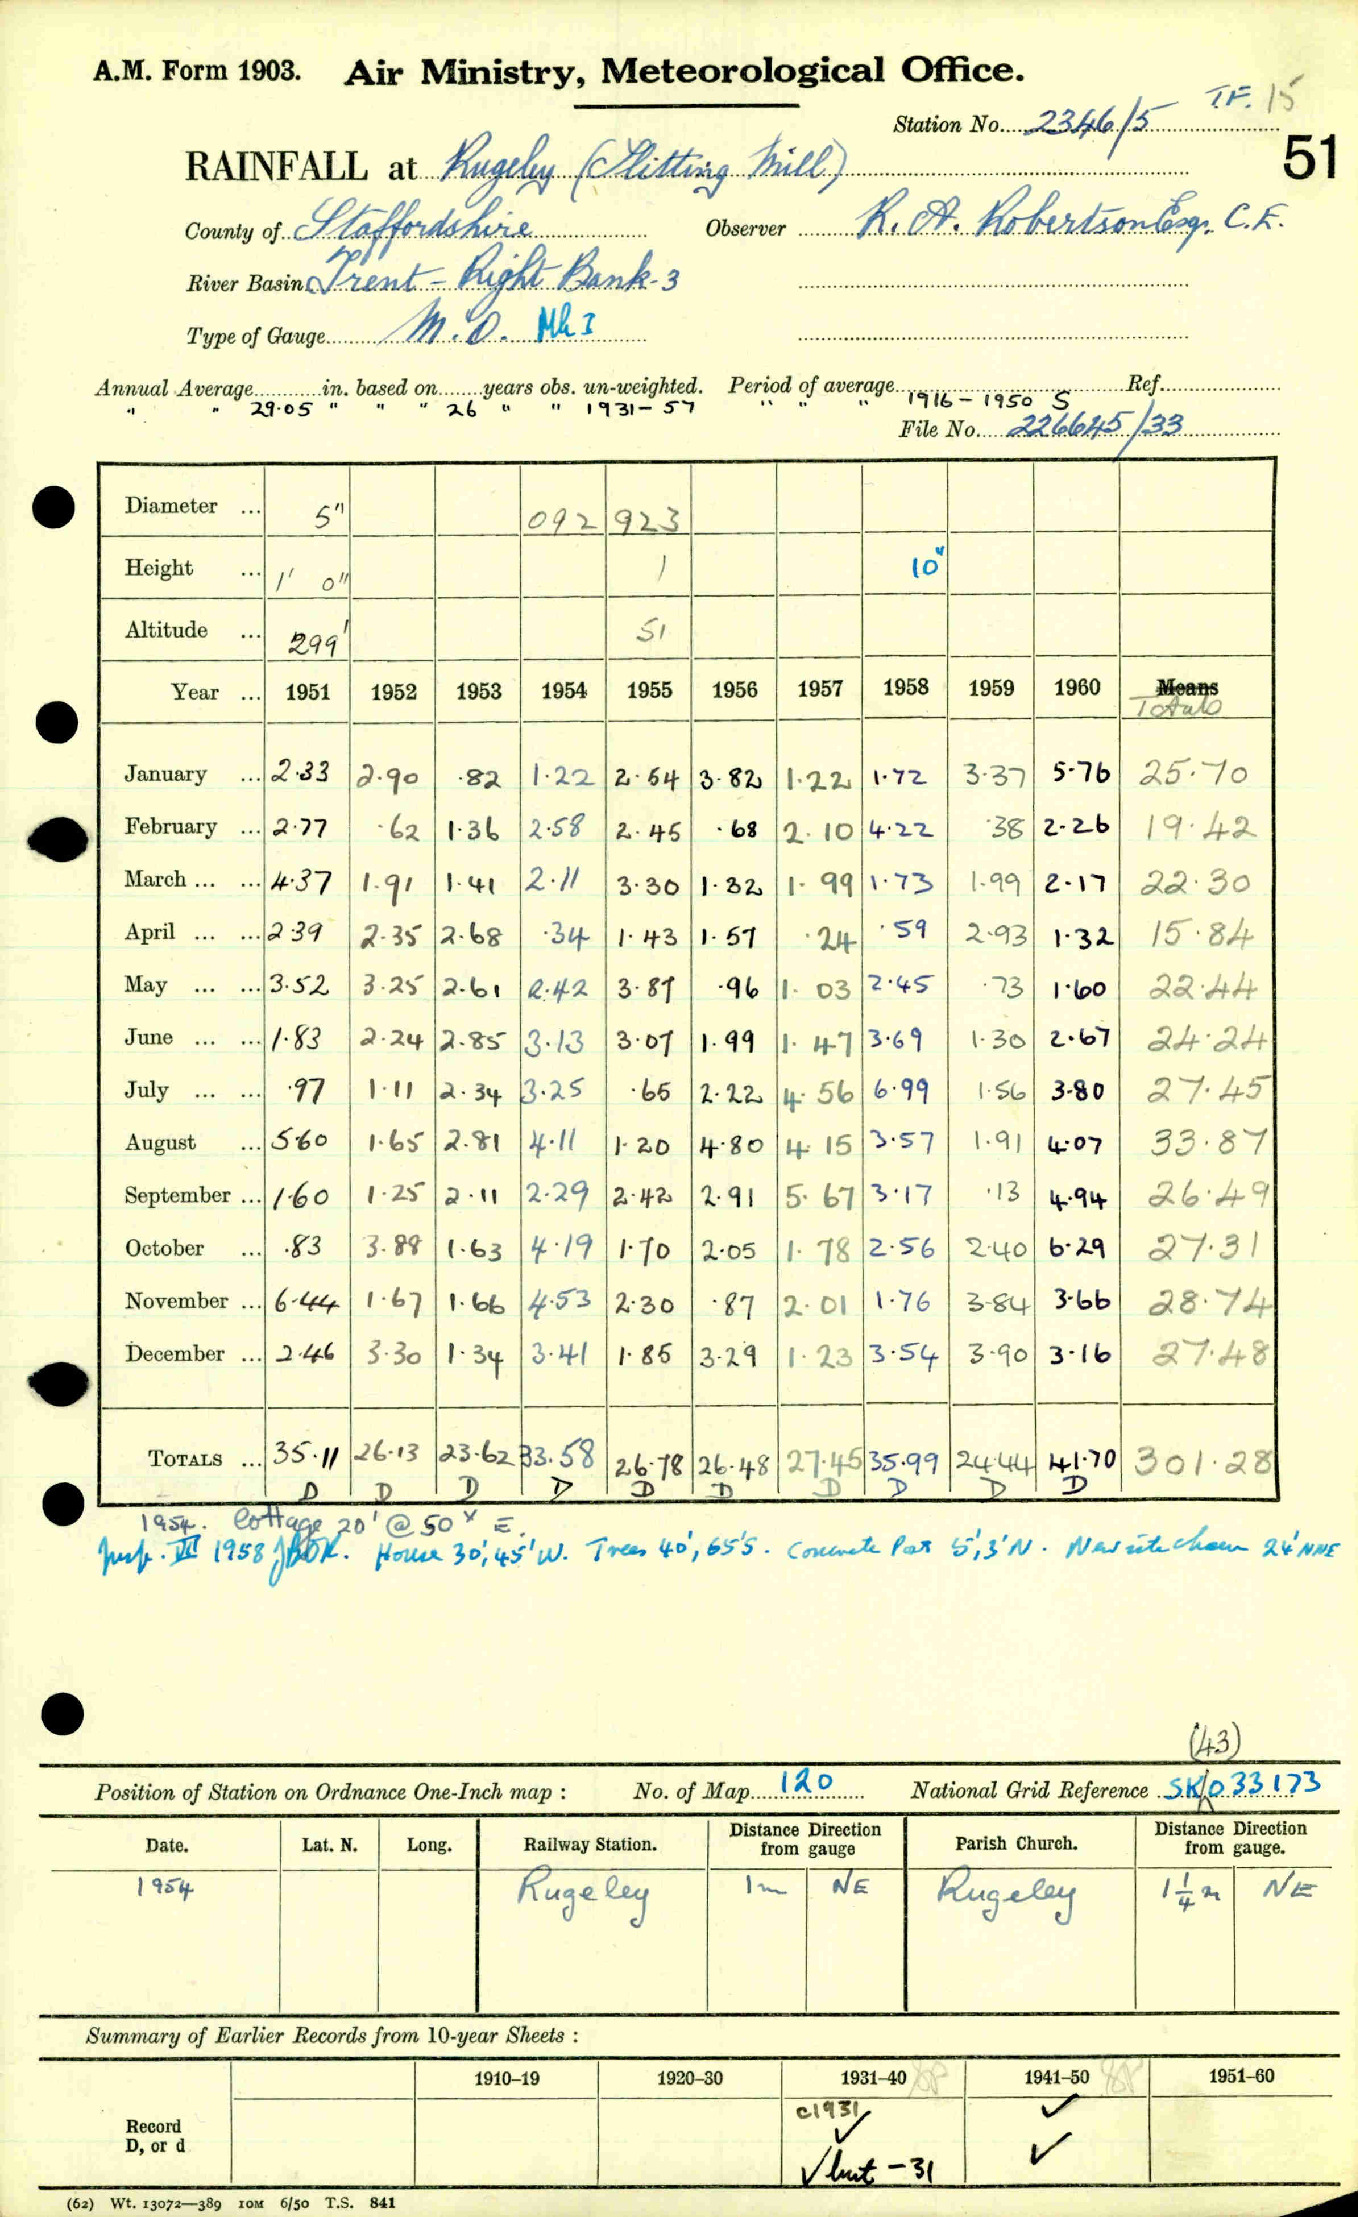 A.M. Form 1903. Air Ministry, Meteorological Office.
T.F. 15
Station No. 2346/5
51
RAINFALL at Rugeley (Slitting Mill)
County of Staffordshire Observer R. A. Robertson Esq. C.E.
River Basin Trent - Right Bank - 3
Type of Gauge M.O. Mk I
Annual Average in. based on years obs. un-weighted. Period of average Ref.
" " 29.05 " " " 26 " " 1931-57 " " " 1916-1950 S
File No. 226645/33
Diameter ... 5" 092 923
Height ... 1' 0" 1 10"
Altitude ... 299' 51
Year ... 1951 1952 1953 1954 1955 1956 1957 1958 1959 1960 Means
Totals
January ... 2.33 2.90 .82 1.22 2.54 3.82 1.22 1.72 3.37 5.76 25.70
February ... 2.77 .62 1.36 2.58 2.45 .68 2.10 4.22 .38 2.26 19.42
March ... ... 4.37 1.91 1.41 2.11 3.30 1.32 1.99 1.73 1.99 2.17 22.30
April ... ... 2.39 2.35 2.68 .34 1.43 1.57 .24 .59 2.93 1.32 15.84
May ... ... 3.52 3.25 2.61 2.42 3.87 .96 1.03 2.45 .73 1.60 22.44
June ... ... 1.83 2.24 2.85 3.13 3.07 1.99 1.47 3.69 1.30 2.67 24.24
July ... ... .97 1.11 2.34 3.25 .65 2.22 4.56 6.99 1.56 3.80 27.45
August ... 5.60 1.65 2.81 4.11 1.20 4.80 4.15 3.57 1.91 4.07 33.87
September ... 1.60 1.25 2.11 2.29 2.42 2.91 5.67 3.17 .13 4.94 26.49
October ... .83 3.88 1.63 4.19 1.70 2.05 1.78 2.56 2.40 6.29 27.31
November ... 6.44 1.67 1.66 4.53 2.30 .87 2.01 1.76 3.84 3.66 28.74
December ... 2.46 3.30 1.34 3.41 1.85 3.29 1.23 3.54 3.90 3.16 27.48
TOTALS ... 35.11 26.13 23.62 33.58 26.78 26.48 27.45 35.99 24.44 41.70 301.28
D D D D D D D D D D
1954. Cottage 20' @ 50x E.
Insp. VII 1958 House 30', 45' W. Trees 40', 65' S. Concrete Post 5', 3' N. New site 24' NNE
(43)
Position of Station on Ordnance One-Inch map : No. of Map 120 National Grid Reference SK/033173
Date. Lat. N. Long. Railway Station. Distance Direction from gauge Parish Church. Distance Direction from gauge.
1954 Rugeley 1m NE Rugeley 1¼m NE
Summary of Earlier Records from 10-year Sheets :
1910–19 1920–30 1931–40 1941–50 1951–60
Record
D, or d
c1931 ✓
✓
✓ but -31 ✓
(62) Wt. 13072—389 10M 6/50 T.S. 841